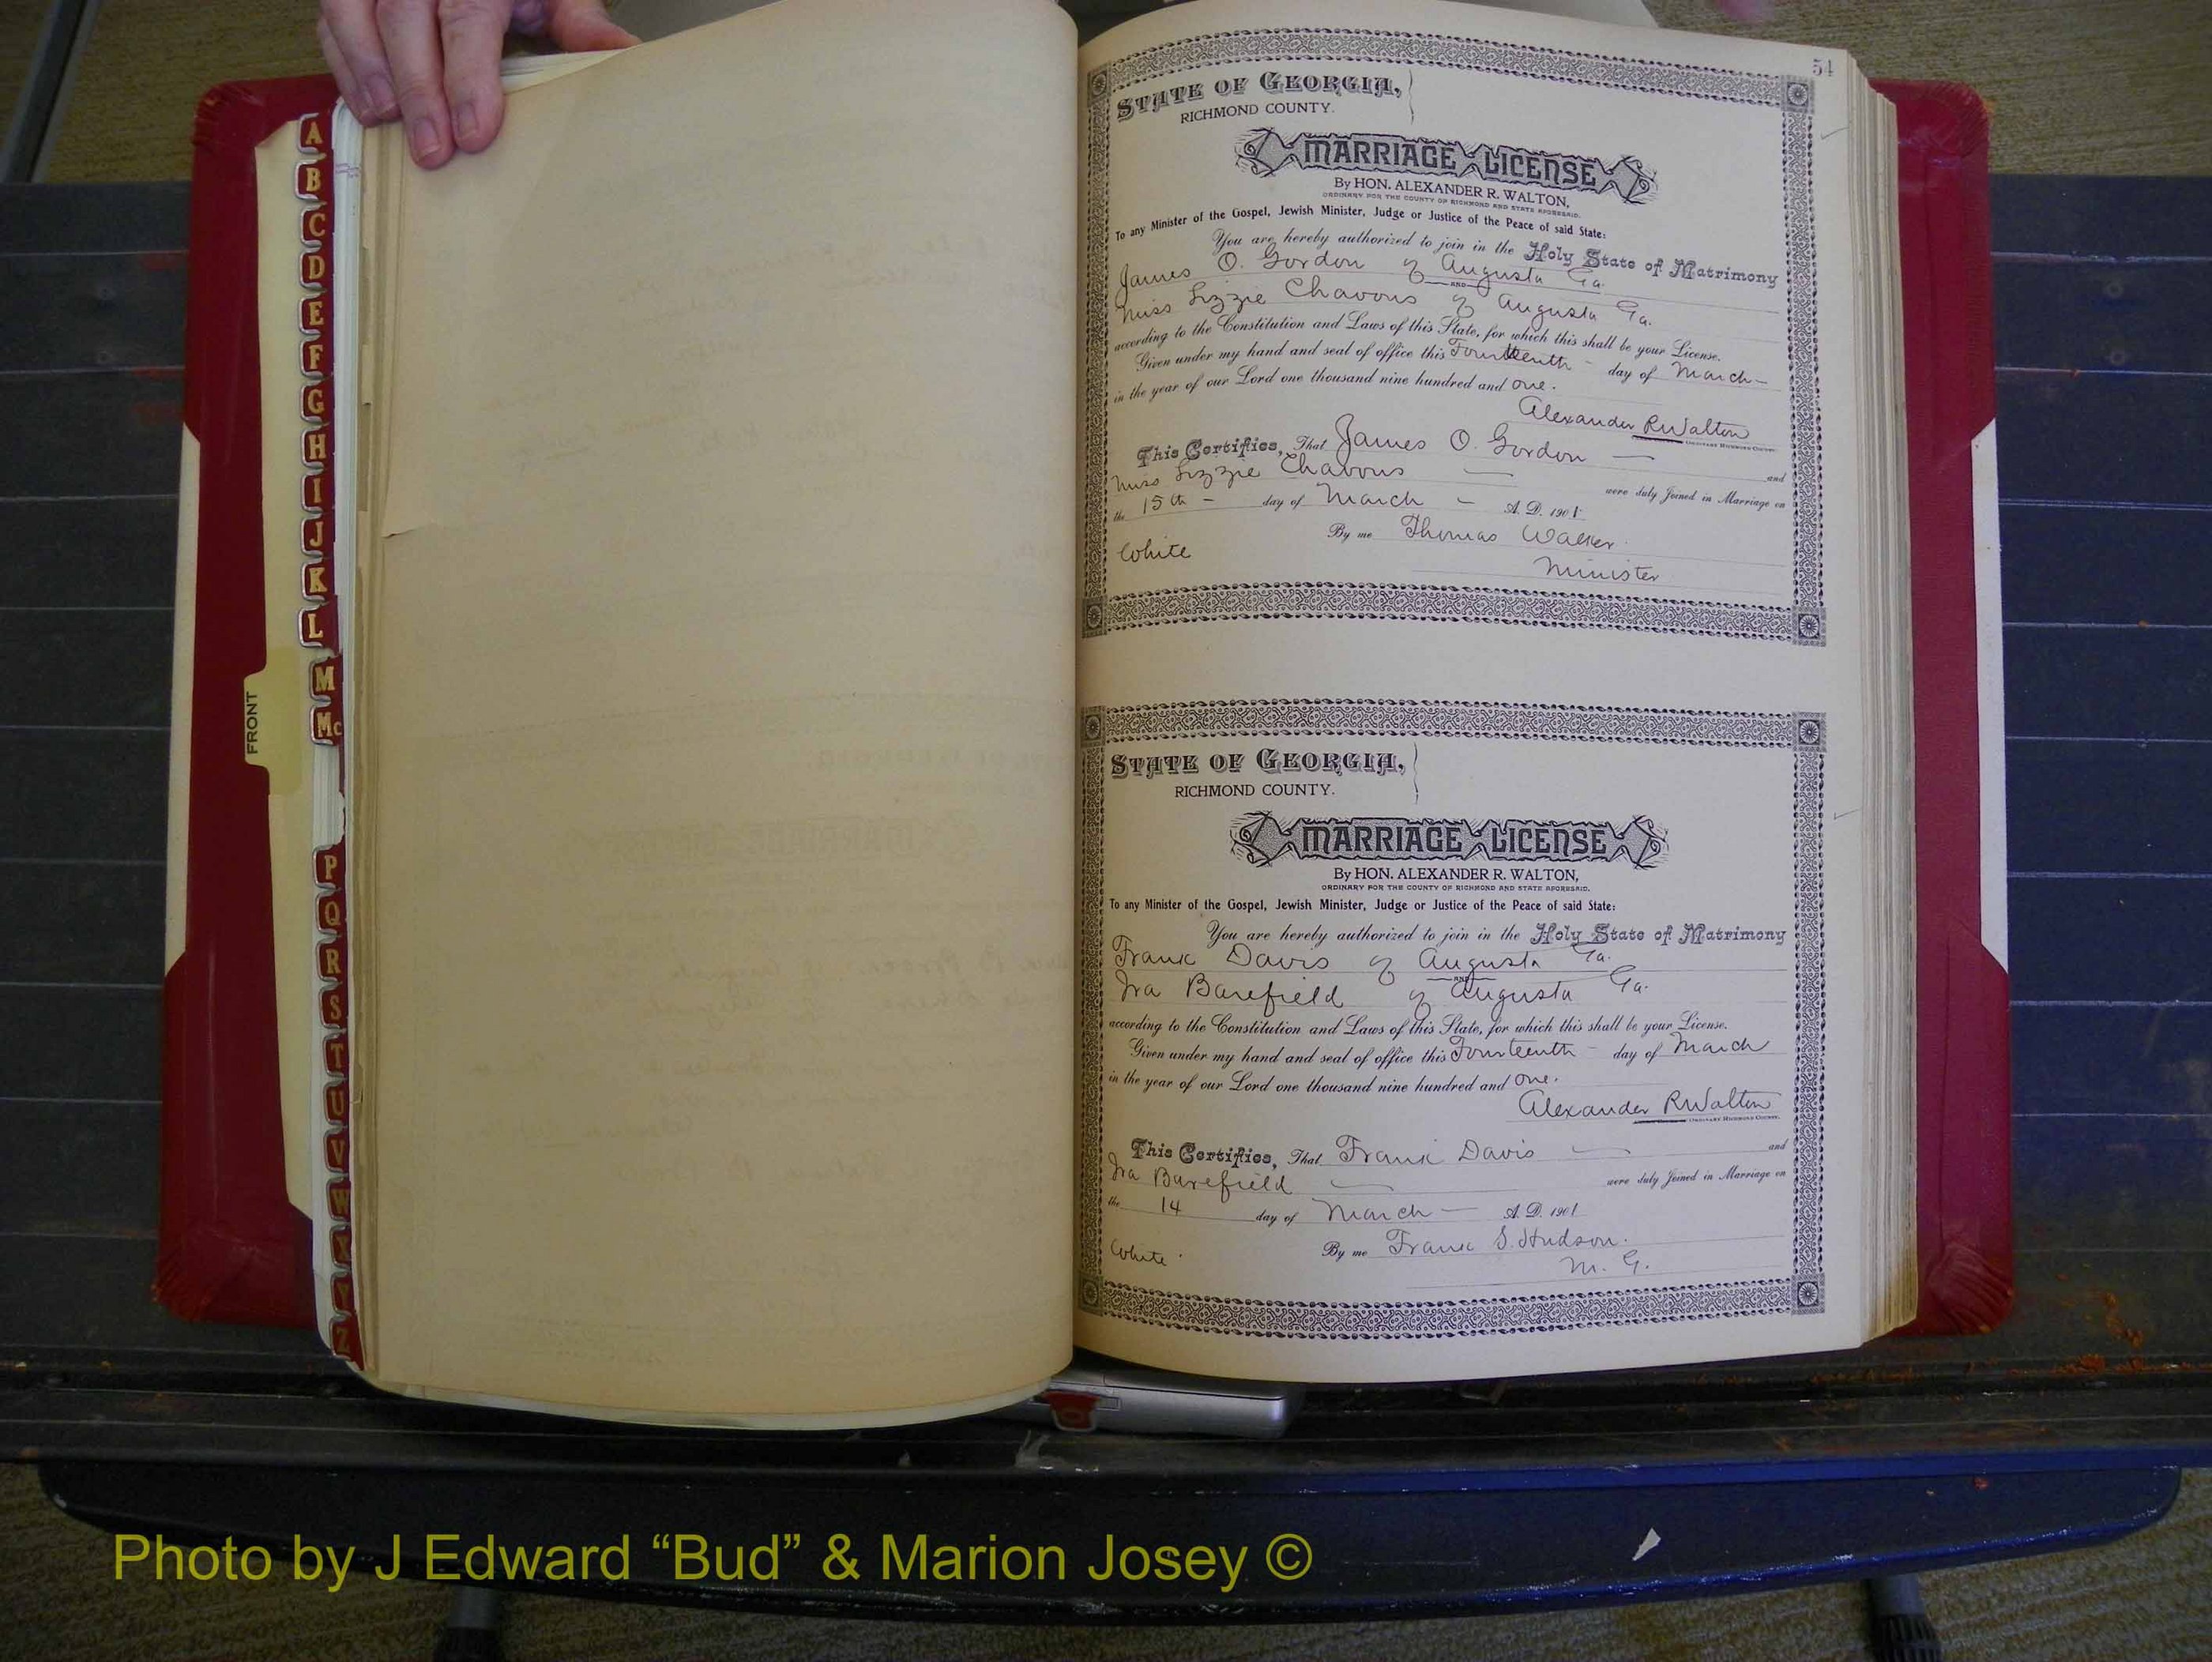 A
B
C
D
E
F
G
H
I
J
K
L
M
Mc
P
Q
R
S
T
U
V
W
X
Y
Z
FRONT
54
STATE OF GEORGIA,
RICHMOND COUNTY.
MARRIAGE LICENSE
By HON. ALEXANDER R. WALTON,
ORDINARY FOR THE COUNTY OF RICHMOND AND STATE AFORESAID.
To any Minister of the Gospel, Jewish Minister, Judge or Justice of the Peace of said State:
You are hereby authorized to join in the Holy State of Matrimony
James O. Gordon of Augusta Ga.
AND
Miss Lizzie Chavous of Augusta Ga.
according to the Constitution and Laws of this State, for which this shall be your License.
Given under my hand and seal of office this Fourteenth - day of March -
in the year of our Lord one thousand nine hundred and one.
Alexander R Walton
ORDINARY RICHMOND COUNTY.
This Certifies, That James O. Gordon — and
Miss Lizzie Chavous — were duly Joined in Marriage on
the 15th - day of March - A. D. 1901
By me Thomas Walker.
White
Minister
STATE OF GEORGIA,
RICHMOND COUNTY.
MARRIAGE LICENSE
By HON. ALEXANDER R. WALTON,
ORDINARY FOR THE COUNTY OF RICHMOND AND STATE AFORESAID.
To any Minister of the Gospel, Jewish Minister, Judge or Justice of the Peace of said State:
You are hereby authorized to join in the Holy State of Matrimony
Frank Davis of Augusta Ga.
AND
Ira Barefield of Augusta Ga.
according to the Constitution and Laws of this State, for which this shall be your License.
Given under my hand and seal of office this Fourteenth - day of March
in the year of our Lord one thousand nine hundred and one.
Alexander R Walton
ORDINARY RICHMOND COUNTY.
This Certifies, That Frank Davis — and
Ira Barefield — were duly Joined in Marriage on
the 14 day of March — A. D. 1901
White. By me Frank S. Hudson.
M. G.
Photo by J Edward “Bud” & Marion Josey ©